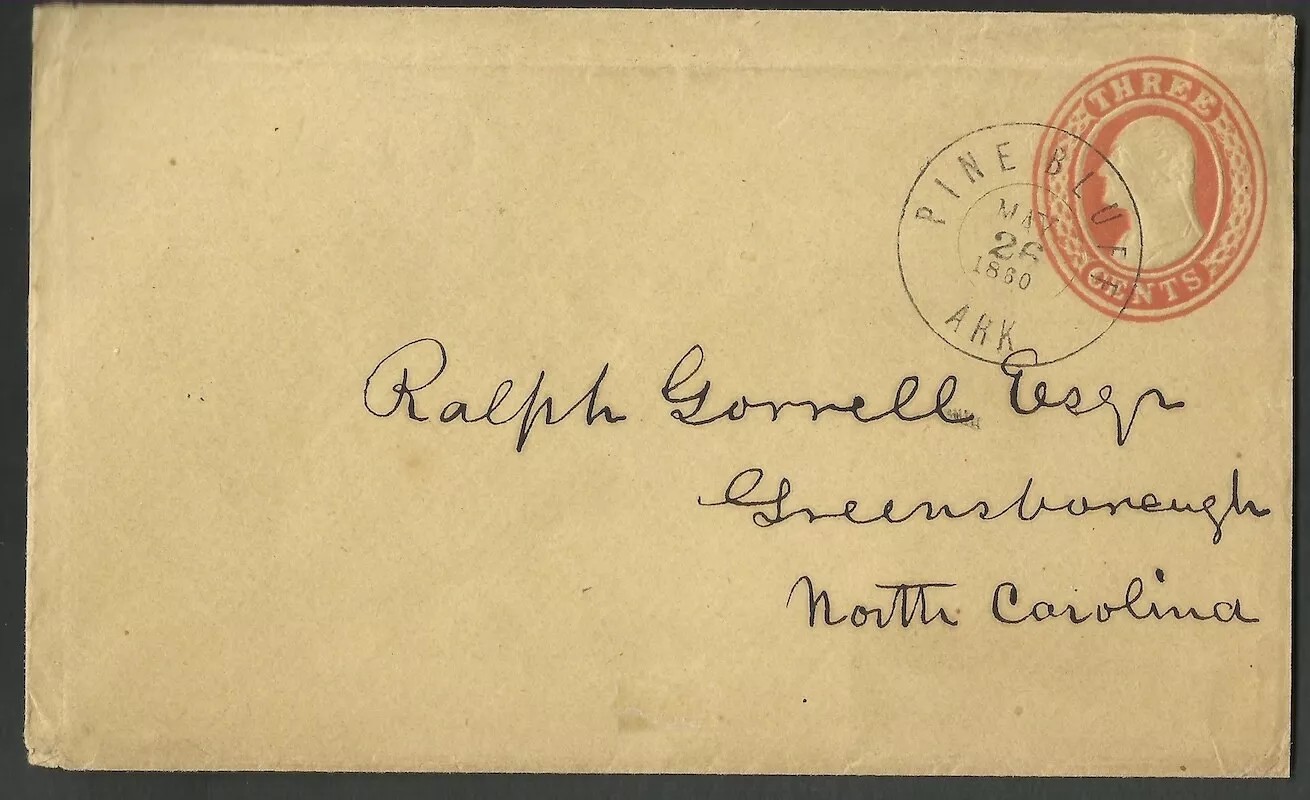 THREE
CENTS
PINE BLUFF
MAY
26
1860
ARK
Ralph Gorrell Esqr
Greensborough
North Carolina